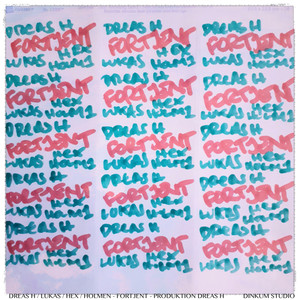 DREAS H DREAS H DREAS H
FORTJENT FORTJENT FORTJENT
HEX HEX HEX
LUKAS HOLM1 LUKAS HOLM1 LUKAS HOLM1
DREAS H DREAS H DREAS H
FORTJENT FORTJENT FORTJENT
HEX HEX HEX
LUKAS HOLM1 LUKAS HOLM1 LUKAS HOLM1
DREAS H DREAS H DREAS H
FORTJENT FORTJENT FORTJENT
HEX HEX HEX
LUKAS HOLM1 LUKAS HOLM1 LUKAS HOLM1
DREAS H DREAS H DREAS H
FORTJENT FORTJENT FORTJENT
HEX HEX HEX
LUKAS HOLM1 LUKAS HOLM1 LUKAS HOLM1
DREAS H DREAS H DREAS H
FORTJENT FORTJENT FORTJENT
HEX HEX HEX
LUKAS HOLM1 LUKAS HOLM1 LUKAS HOLM1
DREAS H / LUKAS / HEX / HOLMEN - FORTJENT - PRODUKTION DREAS H DINKUM STUDIO